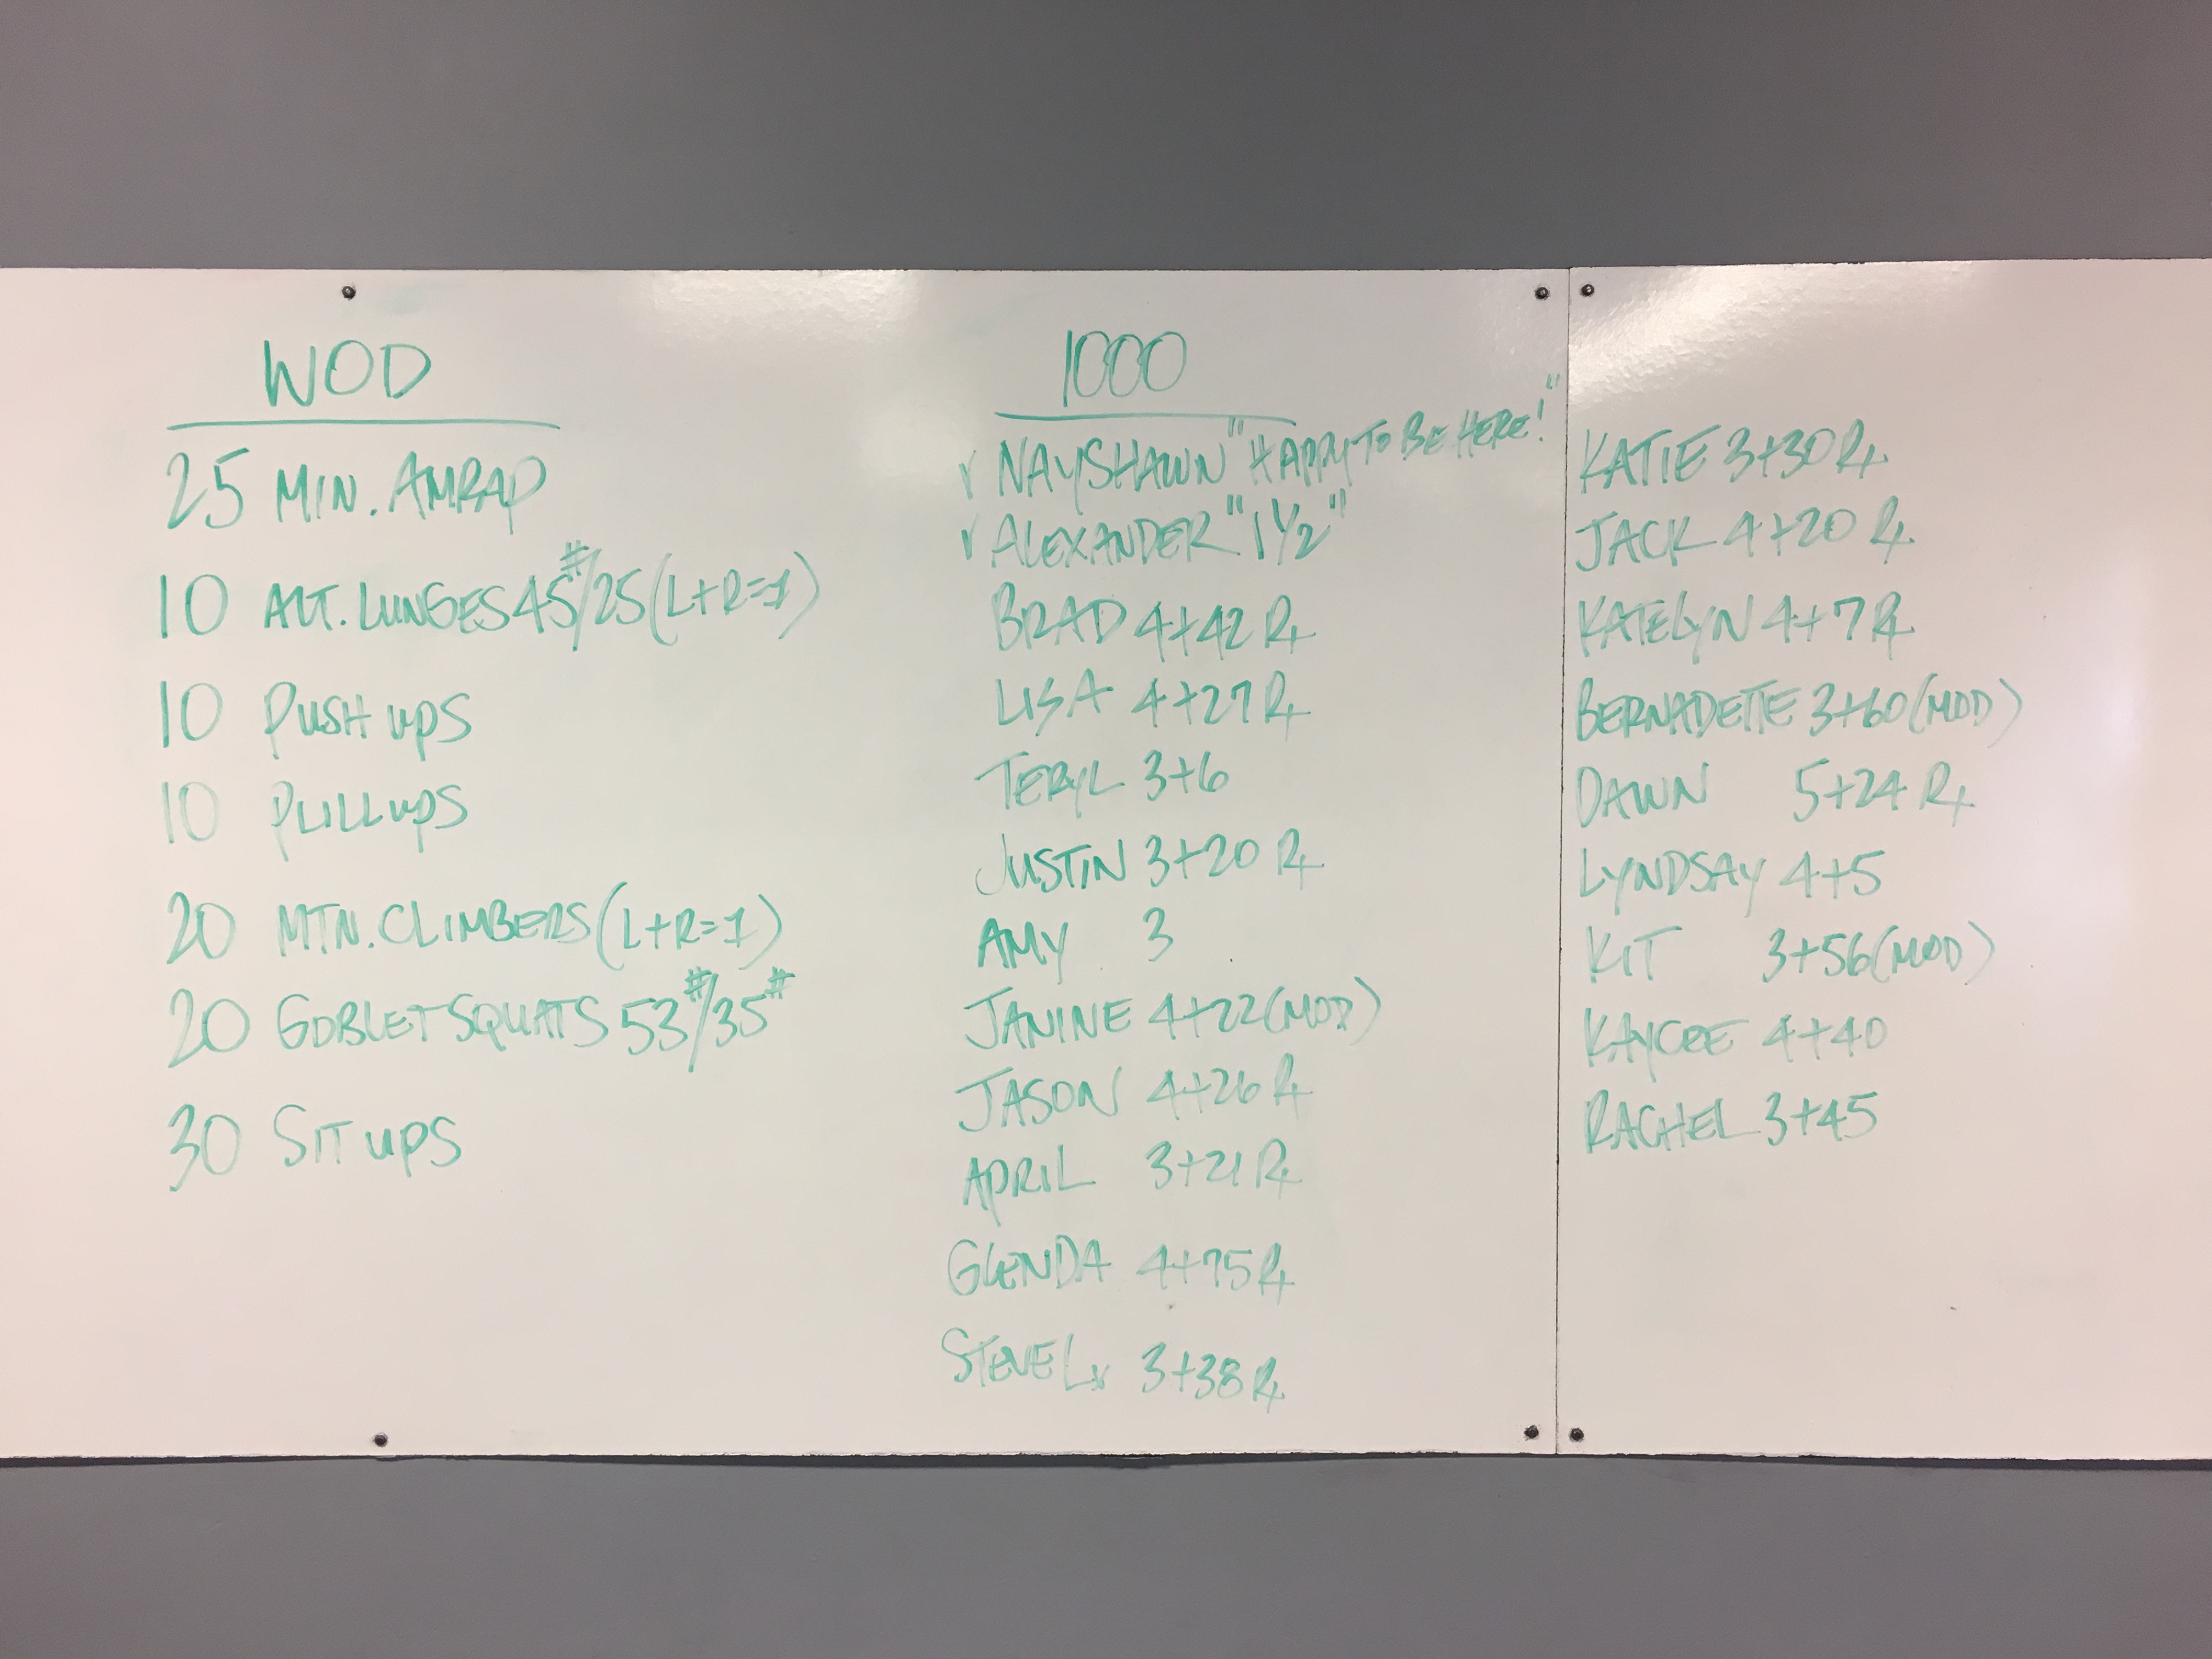 WOD
25 MIN. AMRAP
10 ALT. LUNGES 45#/25 (L+R=1)
10 PUSH UPS
10 PULL UPS
20 MTN. CLIMBERS (L+R=1)
20 GOBLET SQUATS 53#/35#
30 SIT UPS
1000
✓ NAYSHAWN "HAPPY TO BE HERE!"
✓ ALEXANDER "1 1/2"
BRAD 4+42 Rx
LISA 4+27 Rx
TERYL 3+6
JUSTIN 3+20 Rx
AMY 3
JANINE 4+22 (MOD)
JASON 4+26 Rx
APRIL 3+21 Rx
GLENDA 4+75 Rx
STEVE L. 3+38 Rx
KATIE 3+30 Rx
JACK 4+20 Rx
KATELYN 4+7 Rx
BERNADETTE 3+60 (MOD)
DAWN 5+24 Rx
LYNDSAY 4+5
KIT 3+56 (MOD)
KAYCEE 4+40
RACHEL 3+45